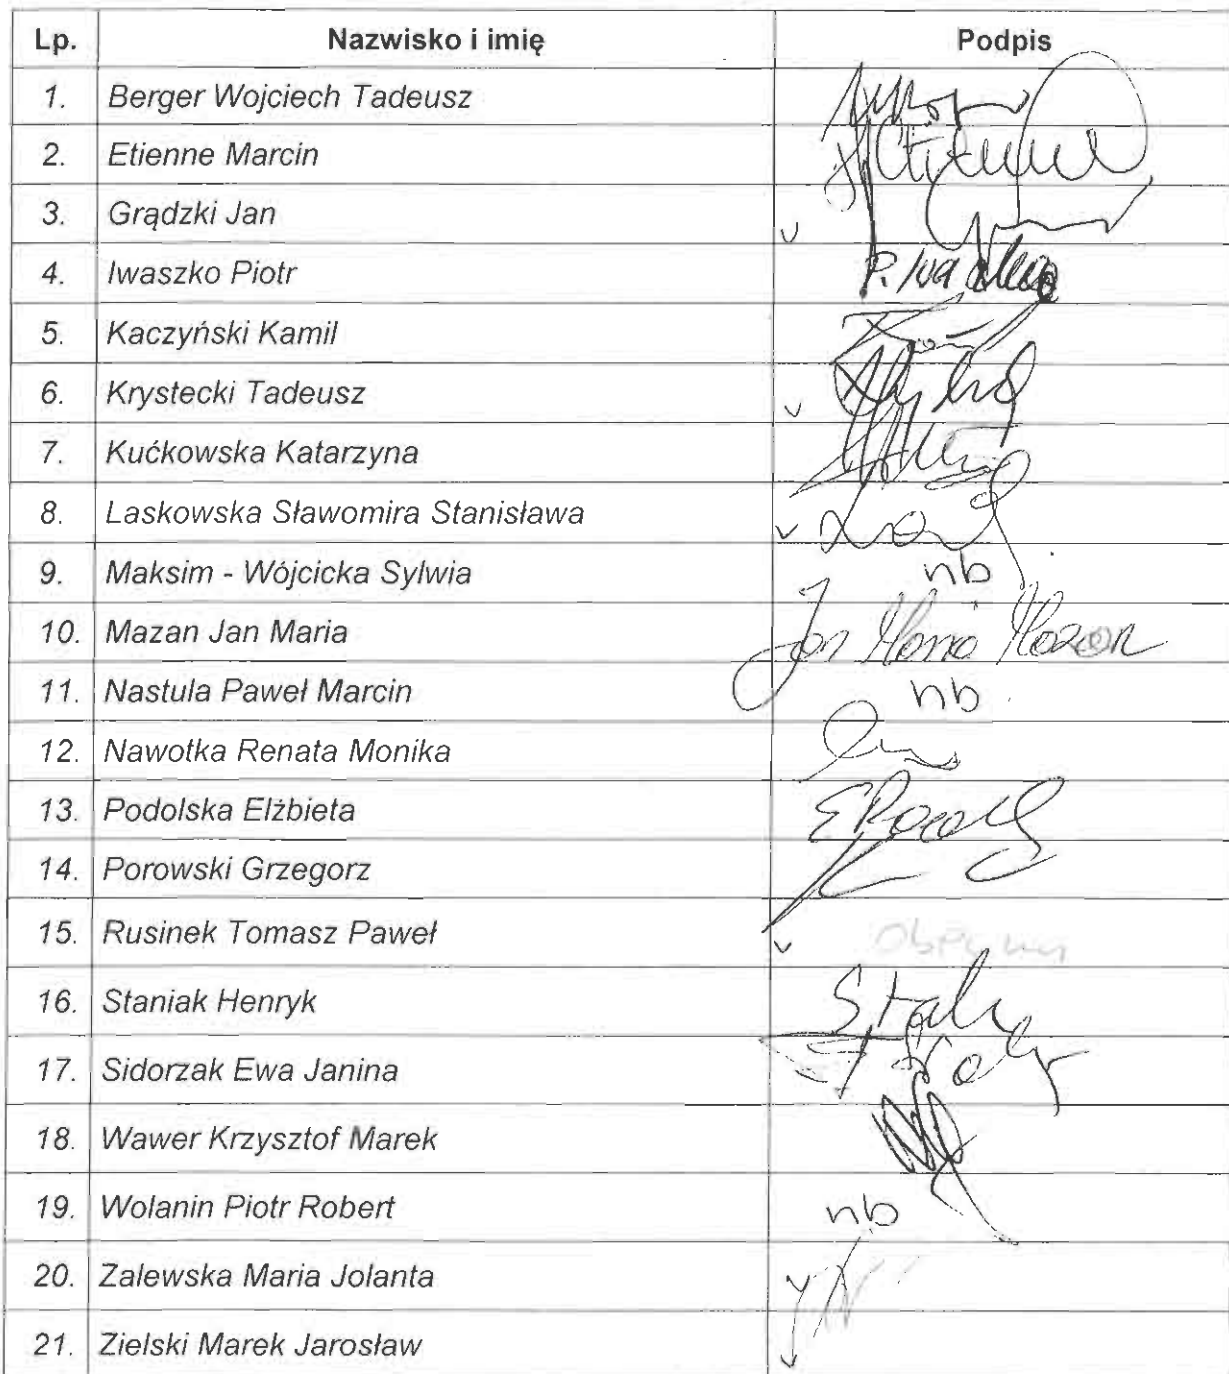 Lp. Nazwisko i imię Podpis
1. Berger Wojciech Tadeusz
2. Etienne Marcin
3. Grądzki Jan
4. Iwaszko Piotr
5. Kaczyński Kamil
6. Krystecki Tadeusz
7. Kućkowska Katarzyna
8. Laskowska Sławomira Stanisława
9. Maksim - Wójcicka Sylwia nb
10. Mazan Jan Maria Jan Maria Mazan
11. Nastula Paweł Marcin nb
12. Nawotka Renata Monika
13. Podolska Elżbieta
14. Porowski Grzegorz
15. Rusinek Tomasz Paweł
16. Staniak Henryk
17. Sidorzak Ewa Janina
18. Wawer Krzysztof Marek
19. Wolanin Piotr Robert nb
20. Zalewska Maria Jolanta
21. Zielski Marek Jarosław